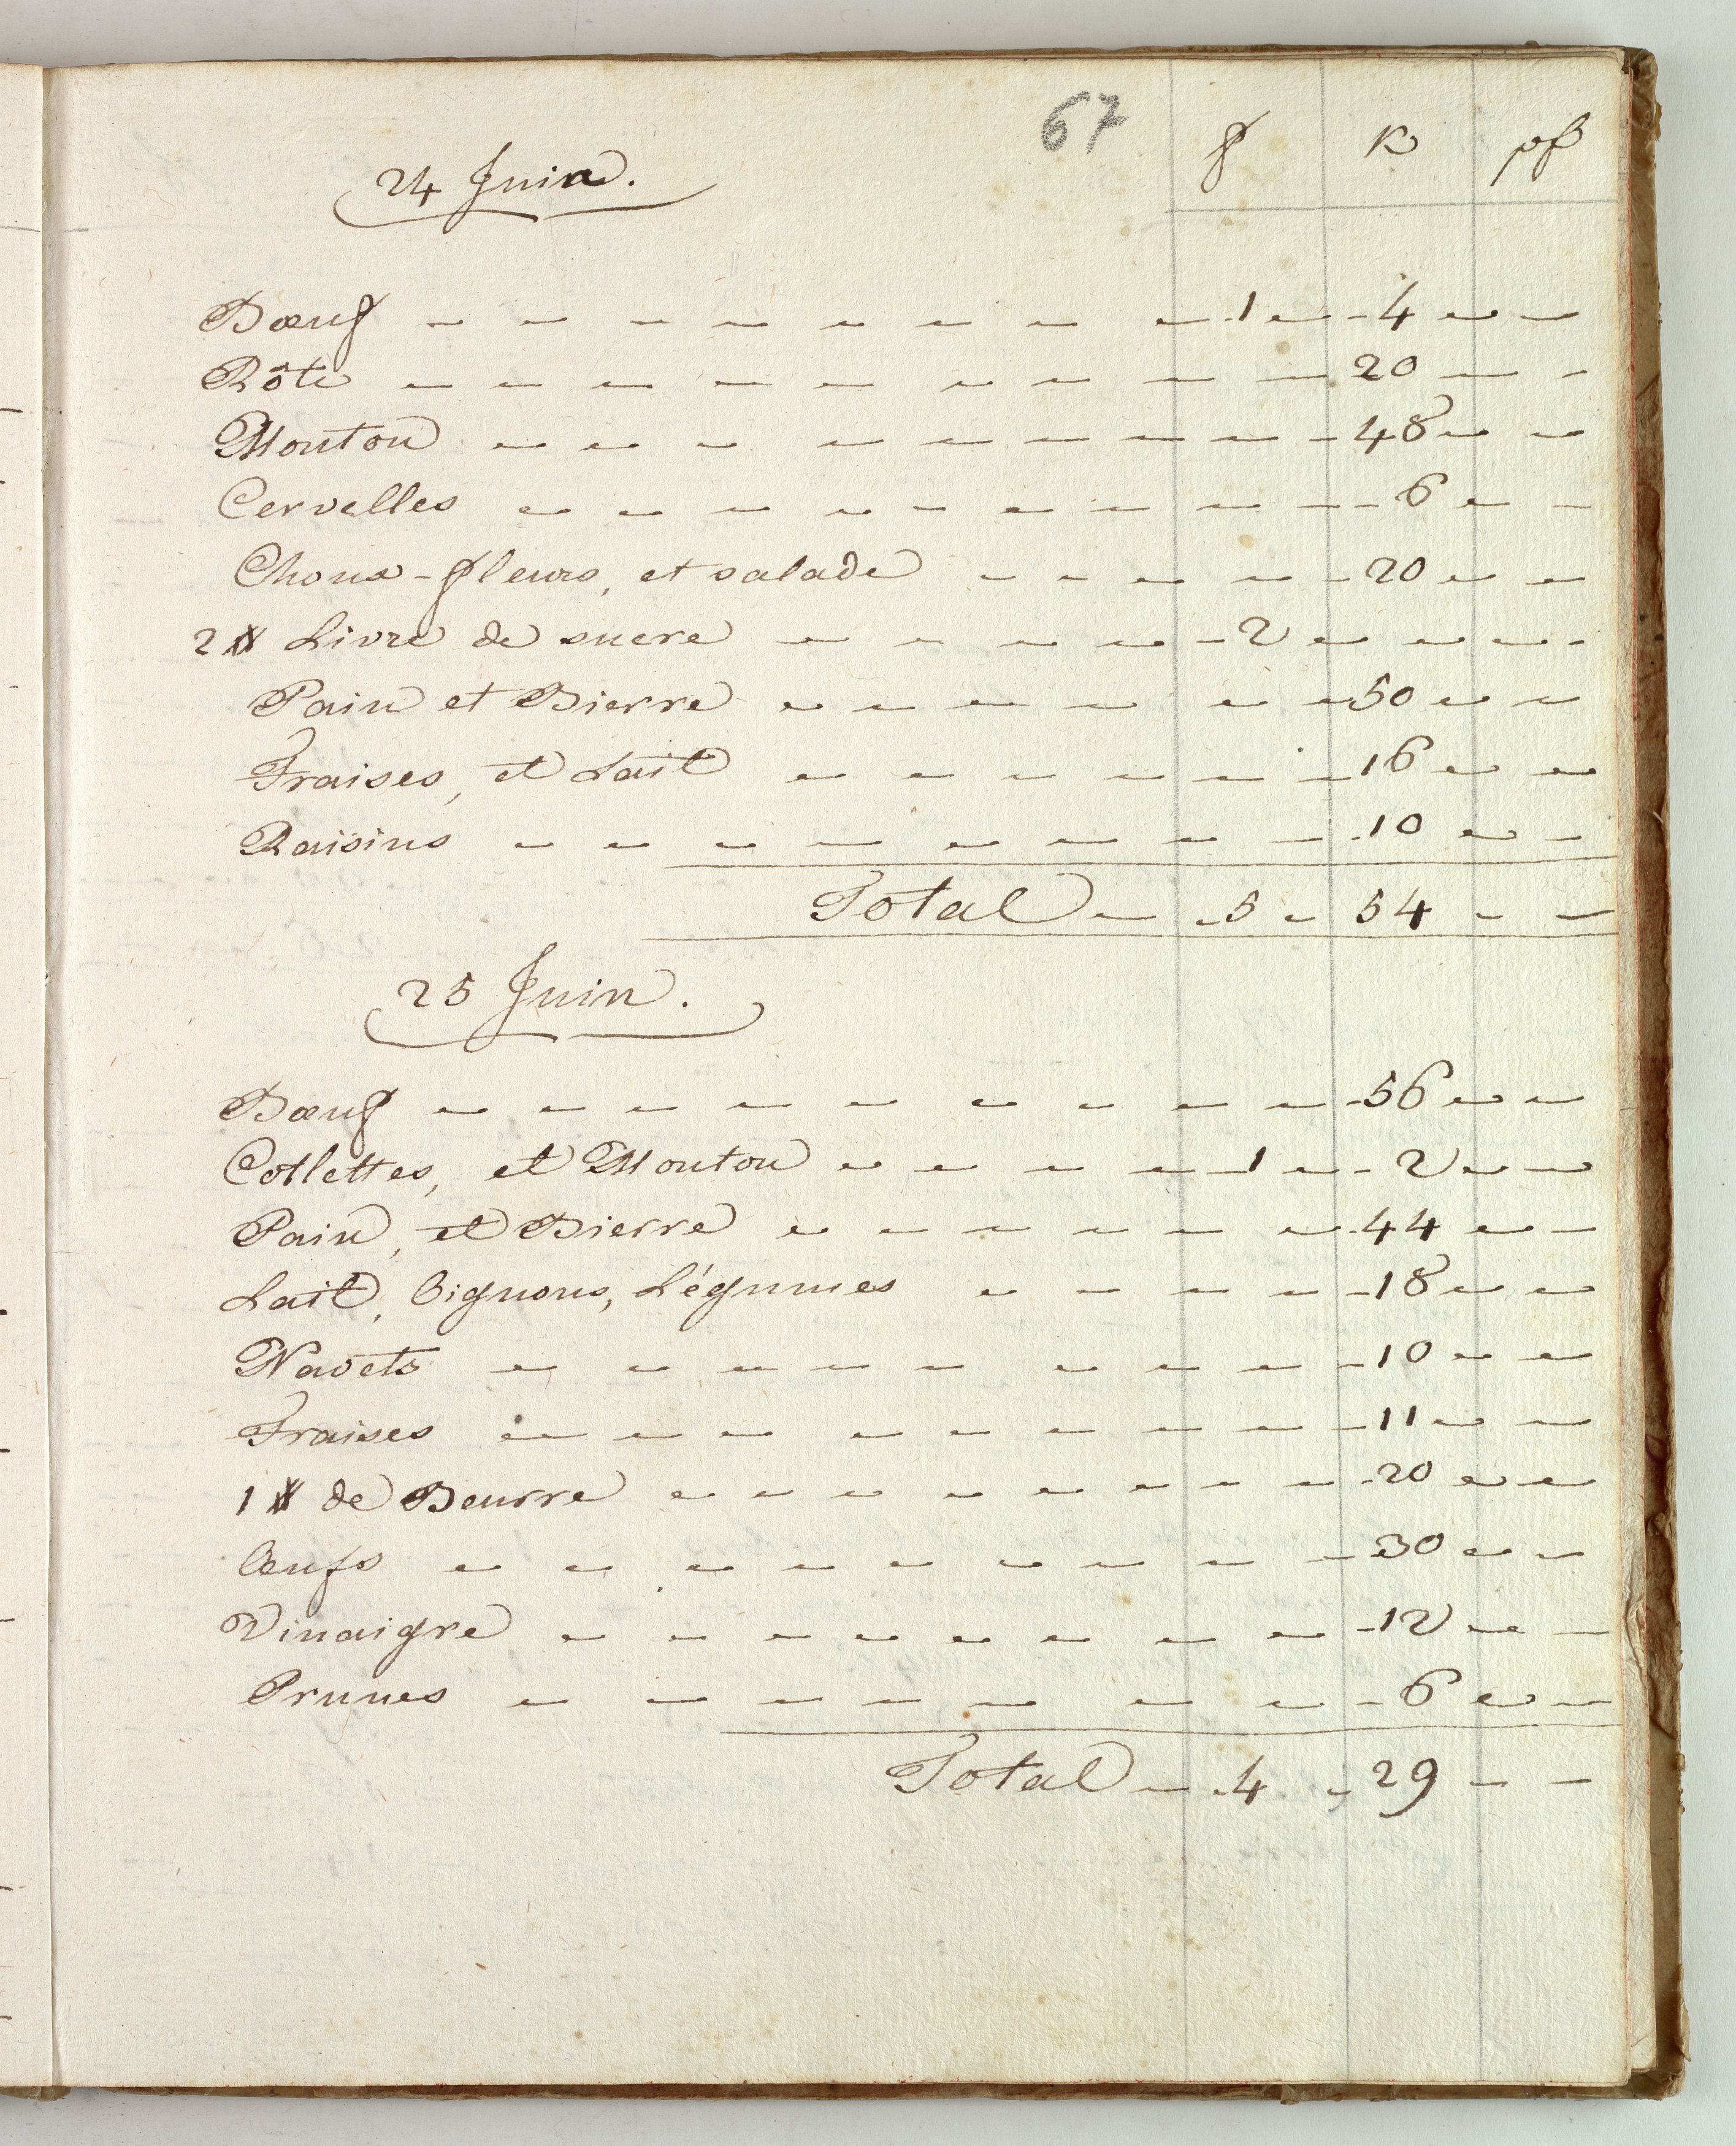 67
f k pf
24 Juin.
Bœuf - - - - - - - - 1 - - 4 - -
Rôti - - - - - - - - - 20 - -
Mouton - - - - - - - - - - 48 - -
Cervelles - - - - - - - - - - 6 - -
Choux-fleurs, et salade - - - - - - 20 - -
2 ℔ Livre de sucre - - - - - 2 - - - -
Pain et Bierre - - - - - - 50 - -
Fraises, et Lait - - - - - - 16 - -
Raisins - - - - - - - - 10 - -
Total - - 5 - 54 - -
25 Juin.
Bœuf - - - - - - - - - - 56 - -
Cotlettes, et Mouton - - - - - 1 - - 2 - -
Pain, et Bierre - - - - - - 44 - -
Lait, Oignons, Légumes - - - - - 18 - -
Navets - - - - - - - - - 10 - -
Fraises - - - - - - - - - 11 - -
1 ℔ de Beurre - - - - - - - - - 20 - -
Œufs - - - - - - - - - 30 - -
Vinaigre - - - - - - - - - 12 - -
Prunes - - - - - - - - 6 - -
Total - - 4 - 29 - -